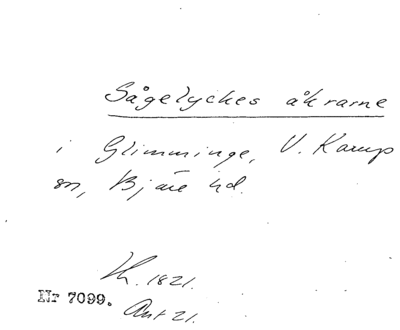 Sågelyckes åkrarne
i Glimminge, V. Karup
sn, Bjäre hd.
1821.
Nr 7099.
Ant 21.